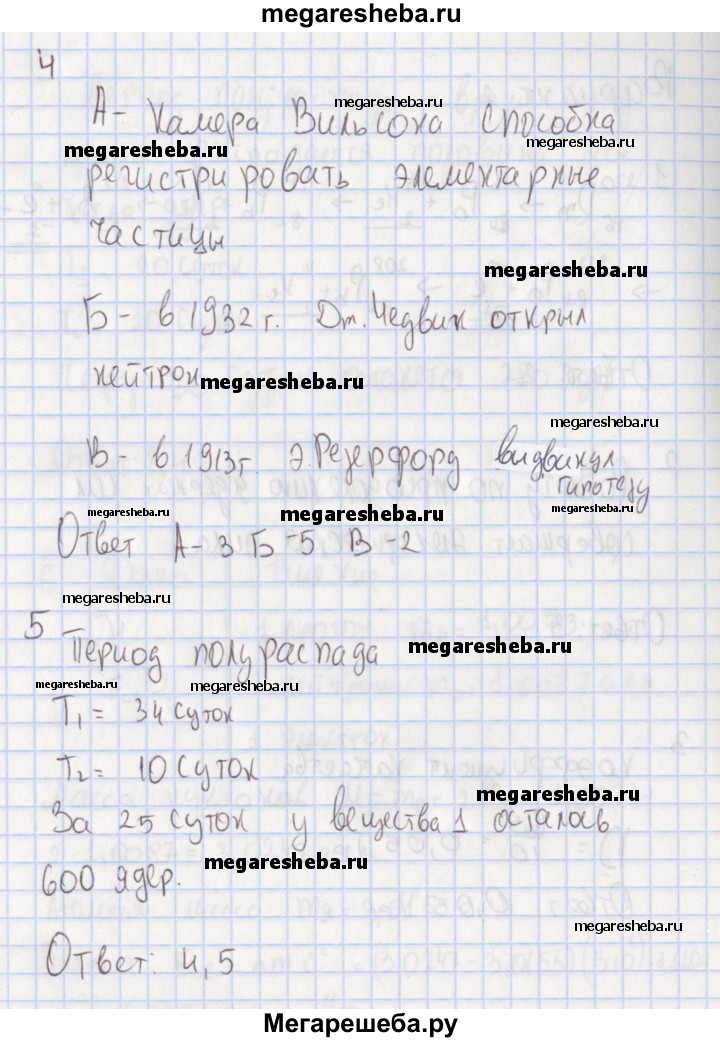 megaresheba.ru
4
А - Камера Вильсона способна
megaresheba.ru
megaresheba.ru
megaresheba.ru
регистрировать элементарные
частицы
megaresheba.ru
Б - в 1932 г. Дт. Чедвик открыл
нейтрон
megaresheba.ru
megaresheba.ru
В - в 1913 г. Э. Резерфорд выдвинул
гипотезу
megaresheba.ru
megaresheba.ru
megaresheba.ru
Ответ А - 3 Б - 5 В - 2
megaresheba.ru
5
Период полураспада
megaresheba.ru
megaresheba.ru
megaresheba.ru
T1 = 34 суток
T2 = 10 суток
megaresheba.ru
За 25 суток у вещества 1 осталось
600 ядер.
megaresheba.ru
megaresheba.ru
Ответ: 4,5
Мегарешеба.ру